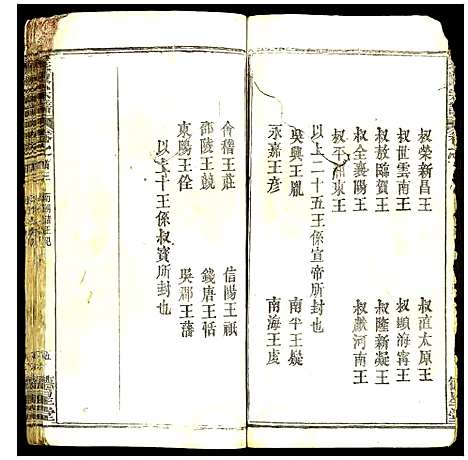 叔榮新昌王 叔宣太原王
叔世雲南王 叔顯海寧王
叔敖臨賀王 叔隆新凝王
叔全襄陽王 叔獻河南王
叔平湘東王
以上二十五王係宣帝所封也
吳興王胤 南平王嶷
永嘉王彥 南海王虔
會稽王莊 信陽王祇
邵陵王兢 錢唐王恬
東陽王佺 吳郡王藩
以上十王係叔寶所封也
德星堂
德星堂